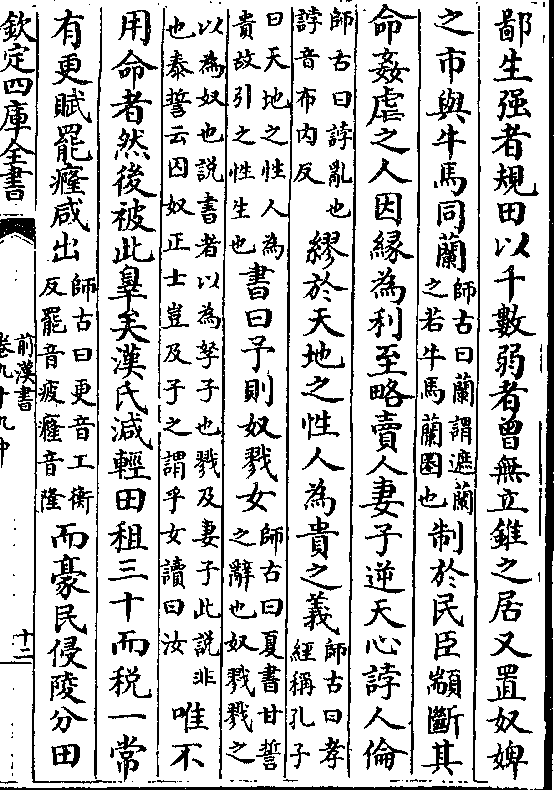 鄙生强者規田以千數弱者曾無立錐之居又置奴婢
之市與牛馬同蘭師古曰蘭謂遮蘭之若牛馬蘭圈也制於民臣顓斷其
命姦虐之人因緣為利至略賣人妻子逆天心誖人倫
師古曰誖亂也誖音布內反繆於天地之性人為貴之義師古曰孝經稱孔子
曰天地之性人為貴故引之性生也書曰予則奴戮女師古曰夏書甘誓之辭也奴戮戮之
以為奴也説書者以為孥子也戮及妻子此説非也泰誓云囚奴正士豈及子之謂乎女讀曰汝唯不
用命者然後被此辠矣漢氏減輕田租三十而税一常
有更賦罷癃咸出師古曰更音工衡反罷音疲癃音隆而豪民侵陵分田
欽定四庫全書
前漢書
卷九十九中
十二